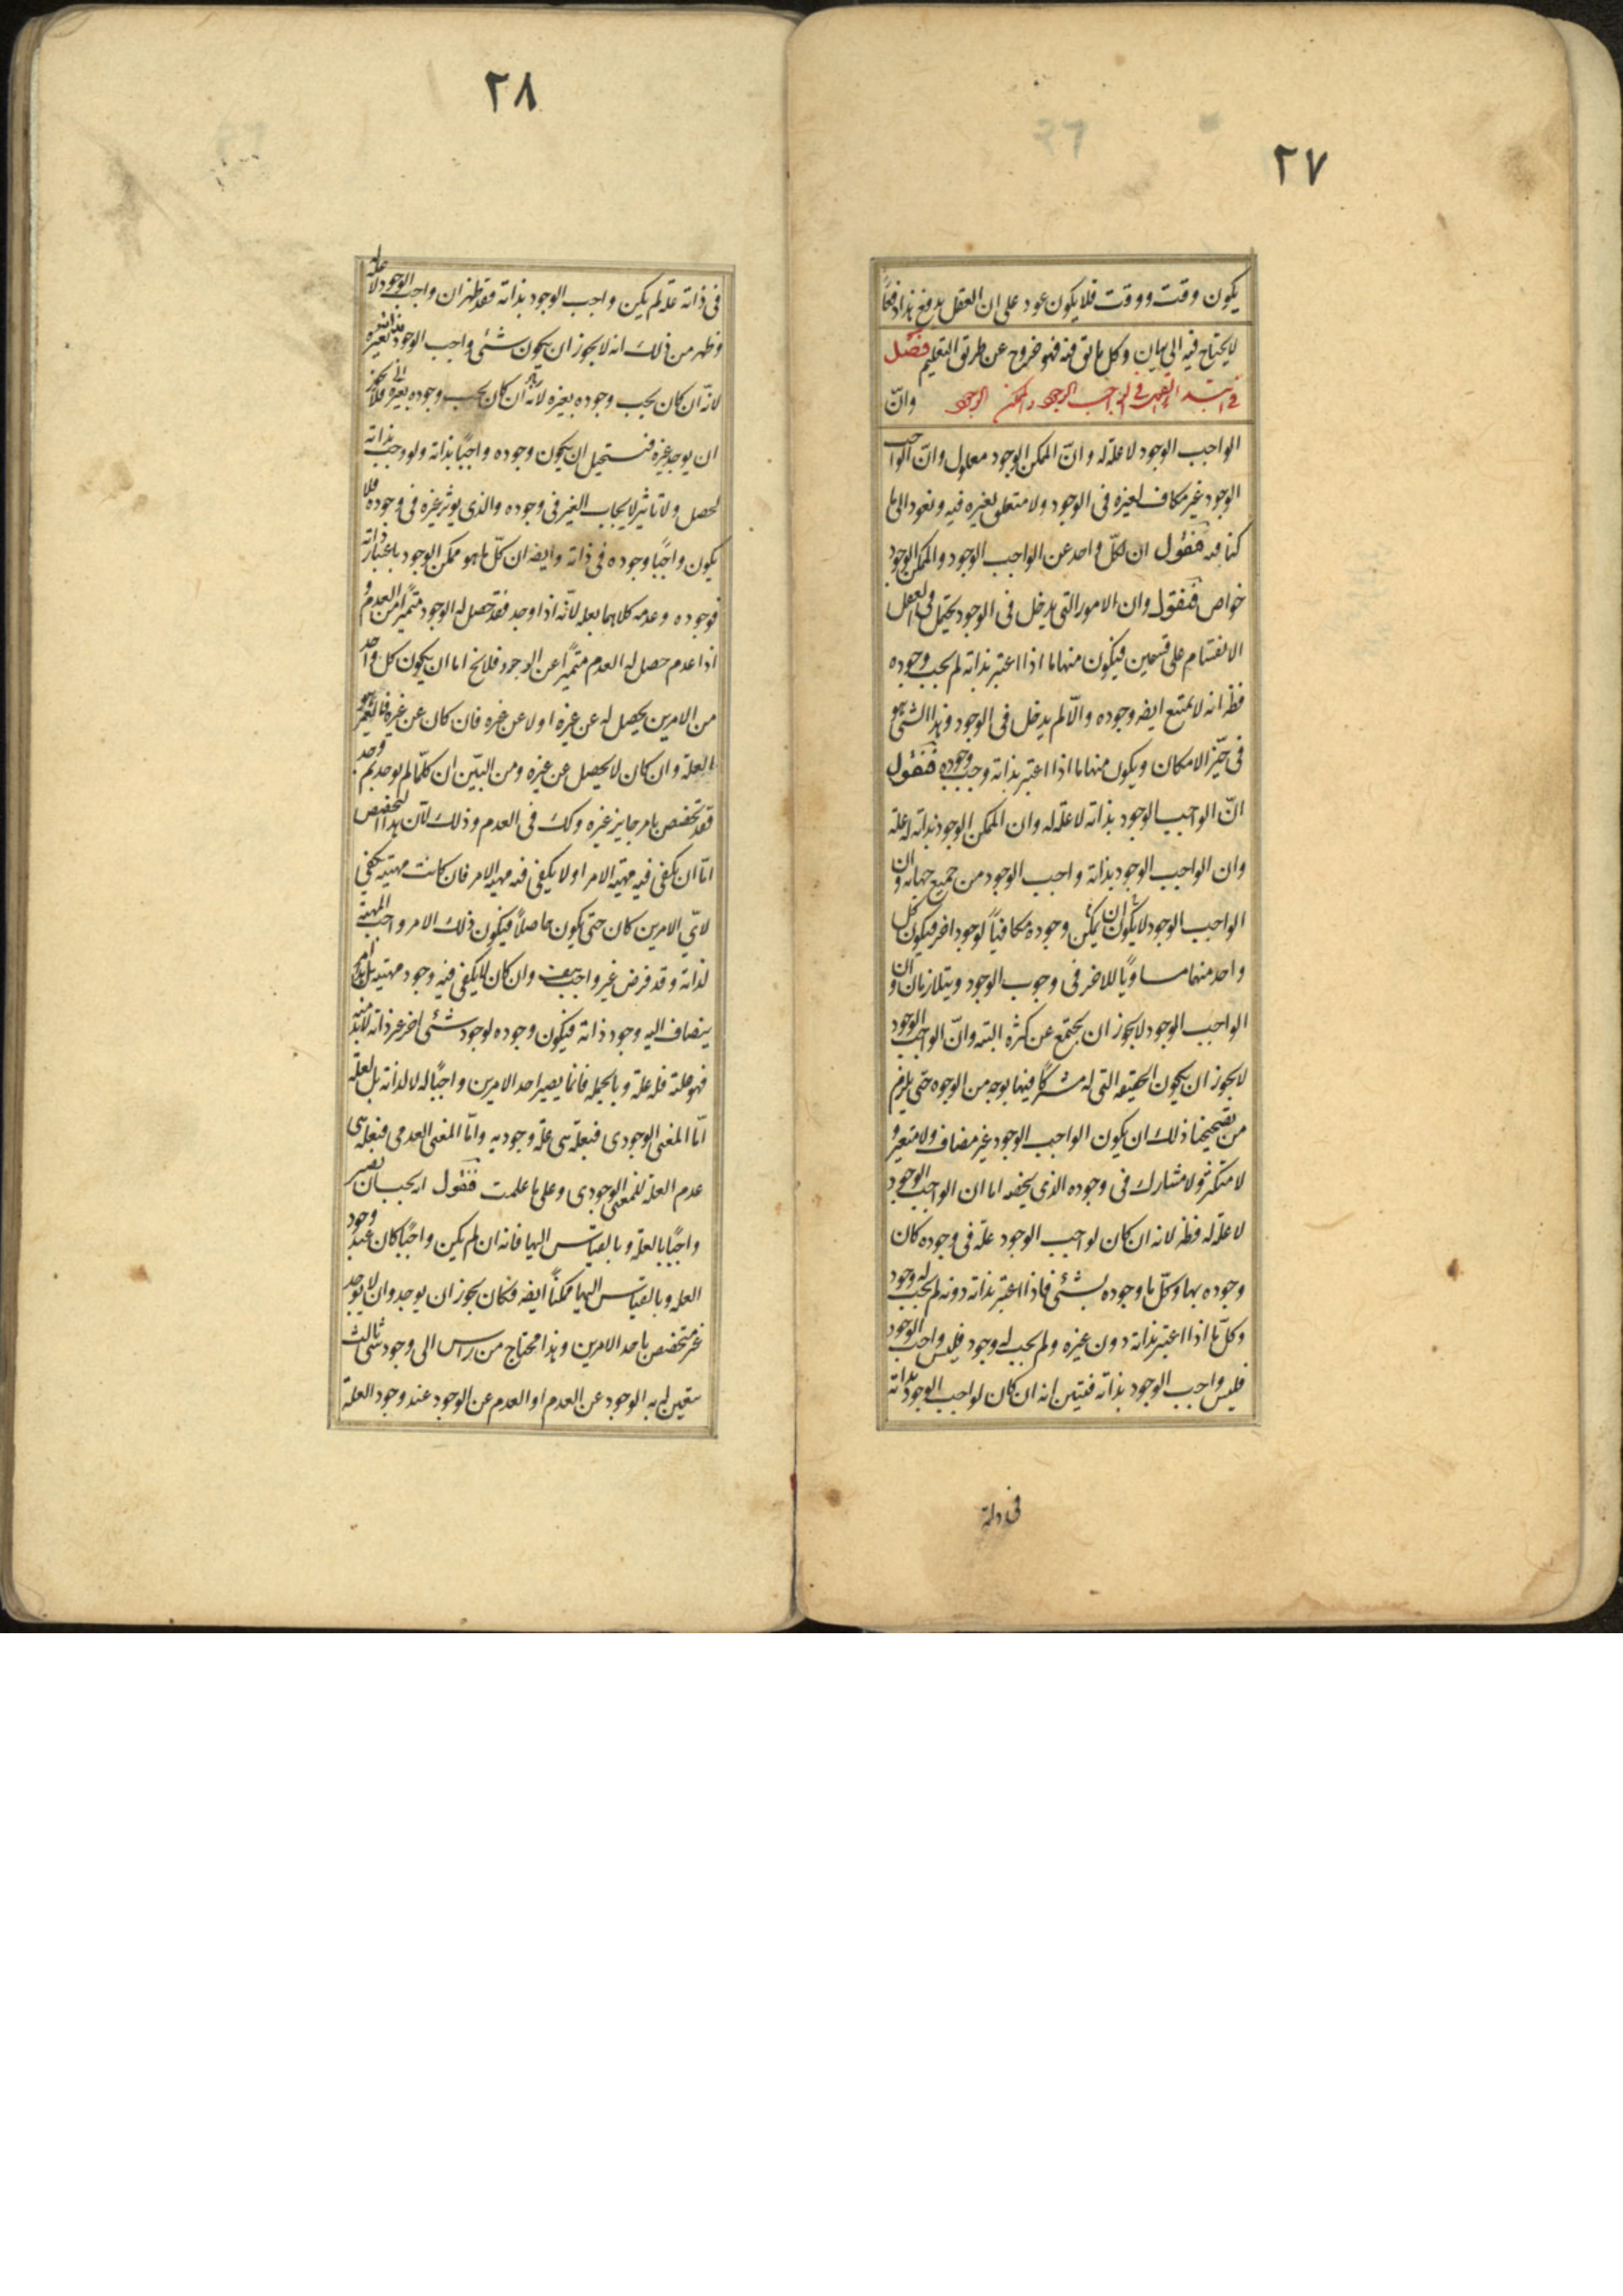 ٢٧
يكون وقت ووقت فلا يكون عود على ان العقل يدفع هذا دفعًا
لا يحتاج فيه الى بيان وكل ما يق فيه فهو خروج عن طريق التعليم فصل
فى ابتداء القول فى الواجب الوجود والممكن الوجود وانّ
الواجب الوجود لا علة له وانّ الممكن الوجود معلول وانّ الواجب
الوجود غير مكاف لغيره فى الوجود ولا متعلق بغيره فيه ونعود الى ما
كنا فيه فنقول ان لكلّ واحد عن الواجب الوجود والممكن الوجود
خواص فنقول وان الامور التى يدخل فى الوجود يحتمل فى العقل
الانقسام على قسمين فيكون منها ما اذا اعتبر بذاته لم يجب وجوده
فظ انه لا يمتنع ايضه وجوده والّا لم يدخل فى الوجود وهذا الشئ هو
فى حيّز الامكان ويكون منها ما اذا اعتبر بذاته وجب وجوده فنقول
انّ الواجب الوجود بذاته لا علة له وان الممكن الوجود بذاته له علة
وان الواجب الوجود بذاته واجب الوجود من جميع جهاته وان
الواجب الوجود لا يمكن ان يكون وجوده مكافيًا لوجود اخر فيكون كل
واحد منهما مساويًا للاخر فى وجوب الوجود ويتلازمان وان
الواجب الوجود لا يجوز ان يجتمع عن كثرة البتة وانّ الواجب الوجود
لا يجوز ان يكون الحقيقه التى له مشتركًا فيها بوجه من الوجوه حتى يلزم
من تصحيحنا ذلك ان يكون الواجب الوجود غير مضاف ولا متغير و
لا متكثر ولا مشارك فى وجوده الذى يخصه اما ان الواجب الوجود
لا علة له فظ لانه ان كان لواجب الوجود علة فى وجوده كان
وجوده بها وكلّ ما وجوده بشئ فاذا اعتبر بذاته دونه لم يجب له وجود
وكلّ ما اذا اعتبر بذاته دون غيره ولم يجب له وجود فليس واجب الوجود
فليس واجب الوجود بذاته فتبين انه ان كان لواجب الوجود بذاته
فى ذاته
٢٨
فى ذاته علة لم يكن واجب الوجود بذاته فقد ظهر ان واجب الوجود لا علة
وظهر من ذلك انه لا يجوز ان يكون شئ واجب الوجود بذاته بغيره
لانّه ان كان يجب وجوده بغيره لانه ان كان يجب وجوده بغيره فلا يجوز
ان يوجد غيره فيستحيل ان يكون وجوده واجبًا بذاته ولو وجب بذاته
لحصل ولا تاثير لايجاب الغير فى وجوده والذى يوثر غيره فى وجوده فلا
يكون واجبًا وجوده فى ذاته وايضه ان كلّ ما هو ممكن الوجود باعتبار ذاته
فوجوده وعدمه كلاهما بعله لانّه اذا وجد فقد حصل له الوجود متميّزًا من العدم و
اذا عدم حصل له العدم متميّزًا عن الوجود فلا يخ اما ان يكون كل واحد
من الامرين يحصل له عن غيره او لا عن غيره فان كان عن غيره فالغير هو
العلة وان كان لا يحصل عن غيره ومن البيّن ان كلّما لم يوجد ثم وجد
فقد تخصص بامر جايز غيره وكك فى العدم وذلك لانّ هذا التخصيص
امّا ان يكفى فيه مهية الامر او لا يكفى فيه مهية الامر فان كانت مهيته يكفى
لاىّ الامرين كان حتى يكون حاصلًا فيكون ذلك الامر واجب المهية
لذاته وقد فرض غير واجب هف وان كان لا يكفى فيه وجود مهيته بل امر
ينضاف اليه وجود ذاته فيكون وجوده لوجود شئ اخر غير ذاته لا بد منه
فهو علته فله علة وبالجمله فانما يصير احد الامرين واجبًا له لا لذاته بل لعلة
امّا المعنى الوجودى فبعلة هى علة وجوديه وامّا المعنى العدمى فبعلة هى
عدم العلة للمعنى الوجودى وعلى ما علمت فنقول انه يجب ان يصير
واجبًا بالعلة وبالقياس اليها فانه ان لم يكن واجبًا كان عند وجود
العله وبالقياس اليها ممكنًا ايضه فكان يجوز ان يوجد وان لا يوجد
غير متخصص باحد الامرين وهذا محتاج من راس الى وجود شئ ثالث
يتعين له به الوجود عن العدم او العدم عن الوجود عند وجود العلة